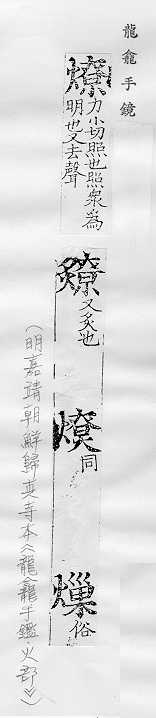 龍龕手鏡
燎力小切照也照衆為
明也又去聲
爒又炙也
同
俗
(明嘉靖朝鮮歸真寺本《龍龕手鑑火部》)